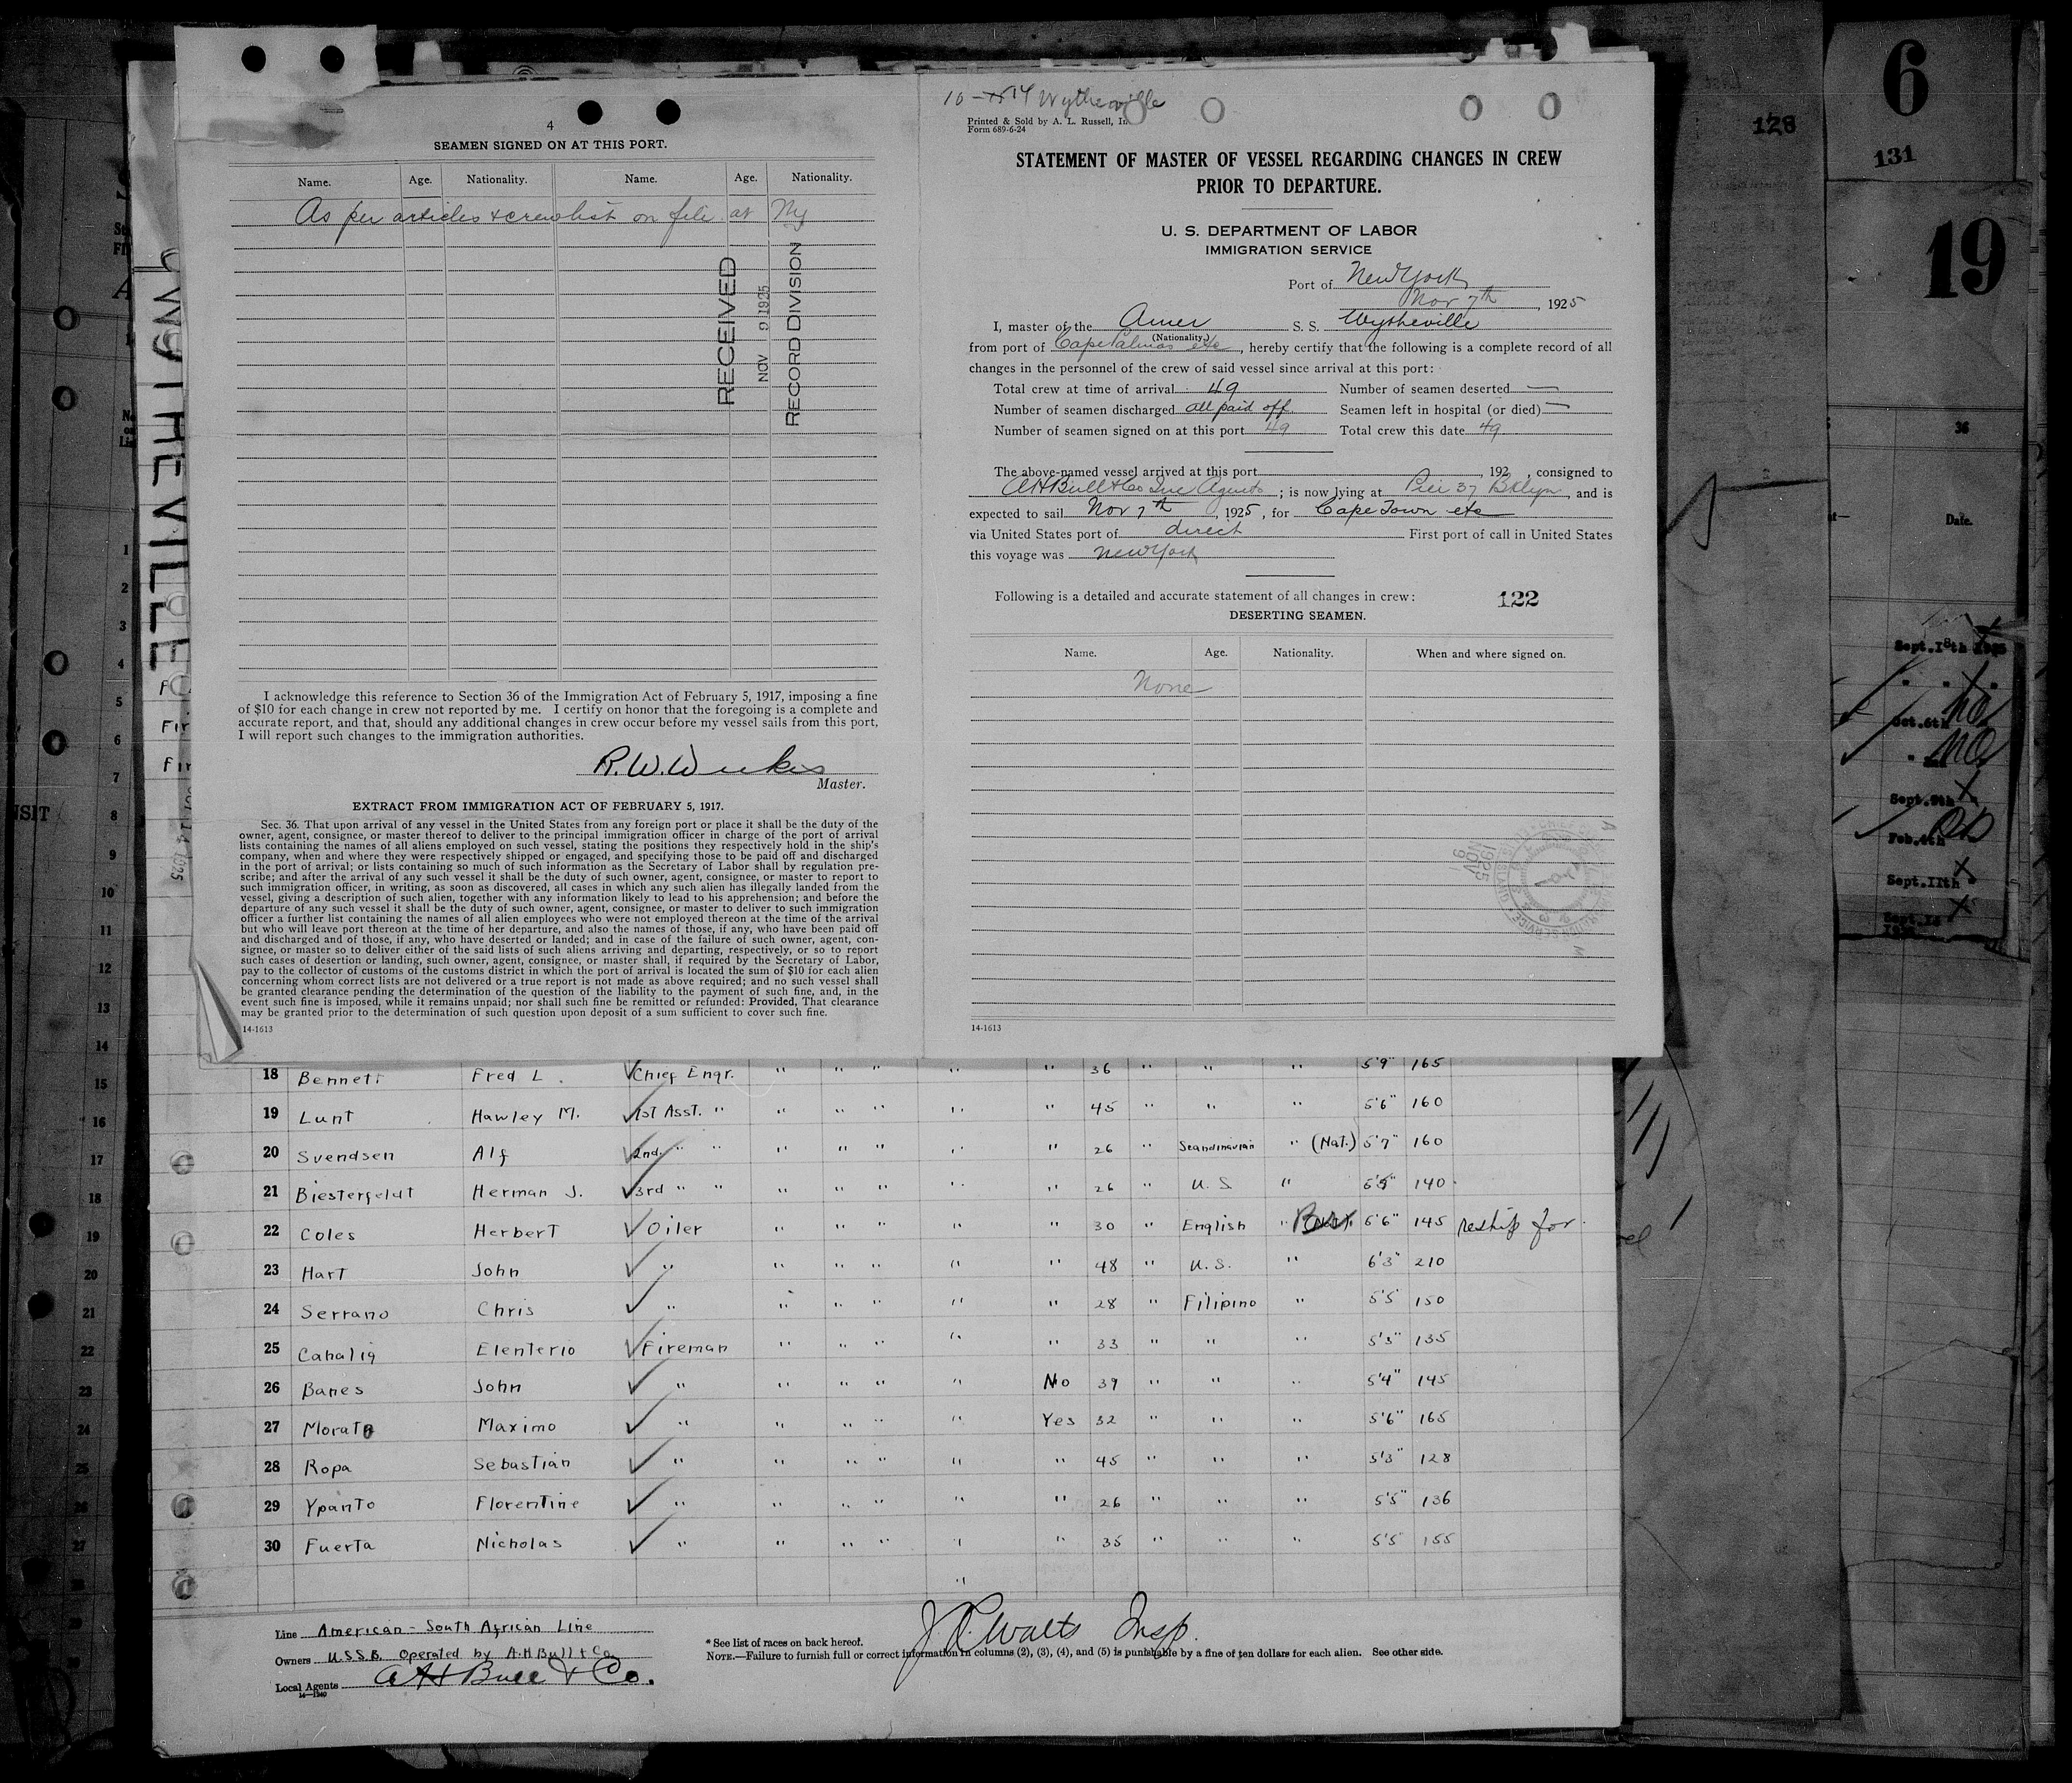 4
SEAMEN SIGNED ON AT THIS PORT.
Name. Age. Nationality. Name. Age. Nationality.
As per articles & crewlist on file at Ny
RECEIVED
NOV 9 1925
RECORD DIVISION
I acknowledge this reference to Section 36 of the Immigration Act of February 5, 1917, imposing a fine
of $10 for each change in crew not reported by me. I certify on honor that the foregoing is a complete and
accurate report, and that, should any additional changes in crew occur before my vessel sails from this port,
I will report such changes to the immigration authorities.
R.W. Weekes
Master.
EXTRACT FROM IMMIGRATION ACT OF FEBRUARY 5, 1917.
Sec. 36. That upon arrival of any vessel in the United States from any foreign port or place it shall be the duty of the
owner, agent, consignee, or master thereof to deliver to the principal immigration officer in charge of the port of arrival
lists containing the names of all aliens employed on such vessel, stating the positions they respectively hold in the ship's
company, when and where they were respectively shipped or engaged, and specifying those to be paid off and discharged
in the port of arrival; or lists containing so much of such information as the Secretary of Labor shall by regulation pre-
scribe; and after the arrival of any such vessel it shall be the duty of such owner, agent, consignee, or master to report to
such immigration officer, in writing, as soon as discovered, all cases in which any such alien has illegally landed from the
vessel, giving a description of such alien, together with any information likely to lead to his apprehension; and before the
departure of any such vessel it shall be the duty of such owner, agent, consignee, or master to deliver to such immigration
officer a further list containing the names of all alien employees who were not employed thereon at the time of the arrival
but who will leave port thereon at the time of her departure, and also the names of those, if any, who have been paid off
and discharged and of those, if any, who have deserted or landed; and in case of the failure of such owner, agent, con-
signee, or master so to deliver either of the said lists of such aliens arriving and departing, respectively, or so to report
such cases of desertion or landing, such owner, agent, consignee, or master shall, if required by the Secretary of Labor,
pay to the collector of customs of the customs district in which the port of arrival is located the sum of $10 for each alien
concerning whom correct lists are not delivered or a true report is not made as above required; and no such vessel shall
be granted clearance pending the determination of the question of the liability to the payment of such fine, and, in the
event such fine is imposed, while it remains unpaid; nor shall such fine be remitted or refunded: Provided, That clearance
may be granted prior to the determination of such question upon deposit of a sum sufficient to cover such fine.
14-1613
Wytheville
Printed & Sold by A. L. Russell, In
Form 689-6-24
STATEMENT OF MASTER OF VESSEL REGARDING CHANGES IN CREW
PRIOR TO DEPARTURE.
U. S. DEPARTMENT OF LABOR
IMMIGRATION SERVICE
Port of New York
Nov 7th, 1925
I, master of the Amer S. S. Wytheville
(Nationality)
from port of Cape Palmas etc, hereby certify that the following is a complete record of all
changes in the personnel of the crew of said vessel since arrival at this port:
Total crew at time of arrival 49 Number of seamen deserted —
Number of seamen discharged all paid off Seamen left in hospital (or died) —
Number of seamen signed on at this port 49 Total crew this date 49
The above-named vessel arrived at this port , 192 , consigned to
A H Bull & Co Inc Agents ; is now lying at Pier 37 Bklyn, and is
expected to sail Nov 7th, 1925, for Cape Town etc
via United States port of direct First port of call in United States
this voyage was New York
Following is a detailed and accurate statement of all changes in crew: 122
DESERTING SEAMEN.
Name. Age. Nationality. When and where signed on.
None
14-1613
WYTHEVILLE
18 Bennett Fred L. Chief Engr. " " " " " 36 " " " 5'9" 165
19 Lunt Hawley M. 1st Asst. " " " " " " 45 " " " 5'6" 160
20 Svendsen Alf 2nd " " " " " " " 26 " Scandinavian " (Nat.) 5'7" 160
21 Biesterfeldt Herman J. 3rd " " " " " " " 26 " U.S. " 5'5" 140
22 Coles Herbert Oiler " " " " " 30 " English " Brit. 5'6" 145 reship for
23 Hart John " " " " " " 48 " U.S. " 6'3" 210
24 Serrano Chris " " " " " " 28 " Filipino " 5'5" 150
25 Cahalig Elenterio Fireman " " " " " 33 " " " 5'3" 135
26 Banes John " " " " " No 39 " " " 5'4" 145
27 Morato Maximo " " " " " Yes 32 " " " 5'6" 165
28 Ropa Sebastian " " " " " " 45 " " " 5'3" 128
29 Ypanto Florentine " " " " " " 26 " " " 5'5" 136
30 Fuerta Nicholas " " " " " " 35 " " " 5'5" 155
Line American-South African Line
Owners U.S.S.B. Operated by A.H Bull & Co
Local Agents A H Bull & Co.
* See list of races on back hereof.
J. P. Walts Insp.
NOTE.—Failure to furnish full or correct information in columns (2), (3), (4), and (5) is punishable by a fine of ten dollars for each alien. See other side.
6
128
131
19
36
Date.
Sept.18th
Oct.6th
Sept.9th
Feb.4th
Sept.11th